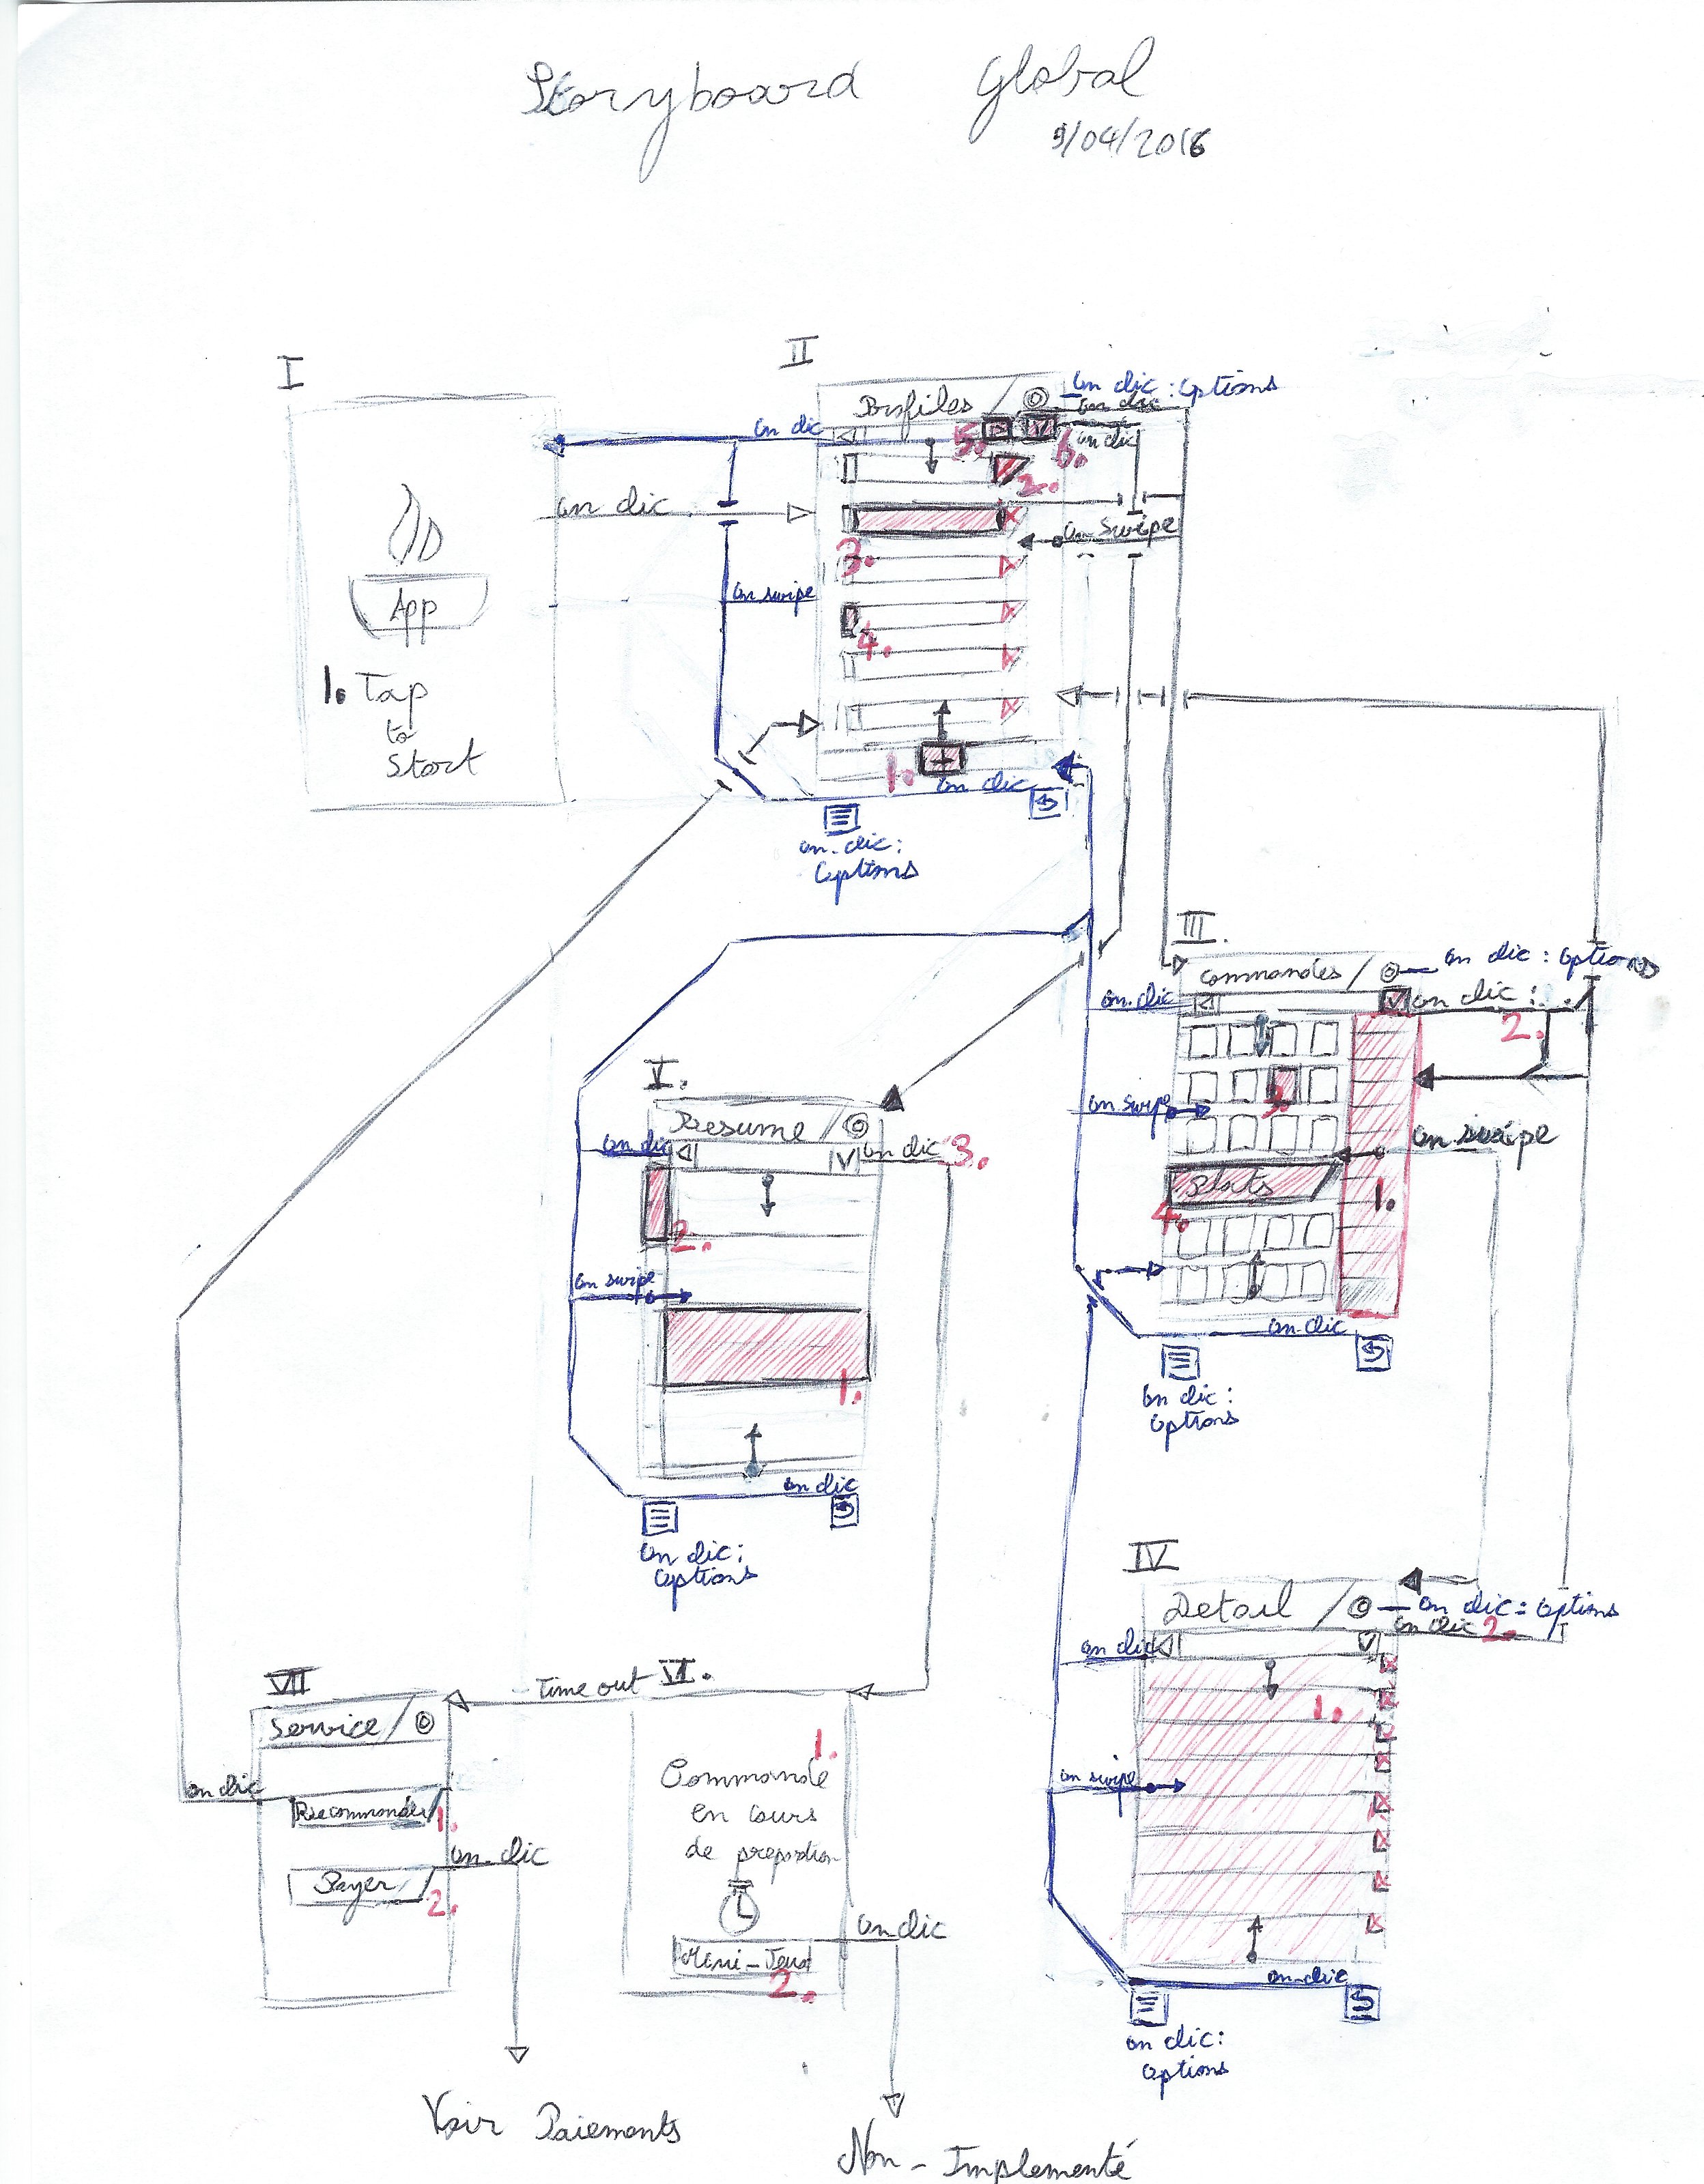 Storyboard Global
5/04/2016
I
App
1. Tap
to
Start
on clic
on clic
on swipe
II
Profiles
on clic : options
on clic
on clic
5.
6.
2.
on swipe
3.
4.
1.
on clic
on clic :
options
III.
commandes
on clic : options
on clic
on clic :
2.
on swipe
3.
on swipe
Plats
1.
4.
on clic
on clic :
options
V.
Resume
on clic
on clic 3.
2.
on swipe
1.
on clic
on clic :
options
IV
Detail
on clic : options
on clic 2.
on clic
1.
on swipe
on clic
on clic :
options
VII
Service
on clic
Recommander
1.
on clic
Payer
2.
Voir Paiements
Time out
VI.
1.
Commande
en cours
de preparation
on clic
Mini-Jeux
2.
Non-Implementé